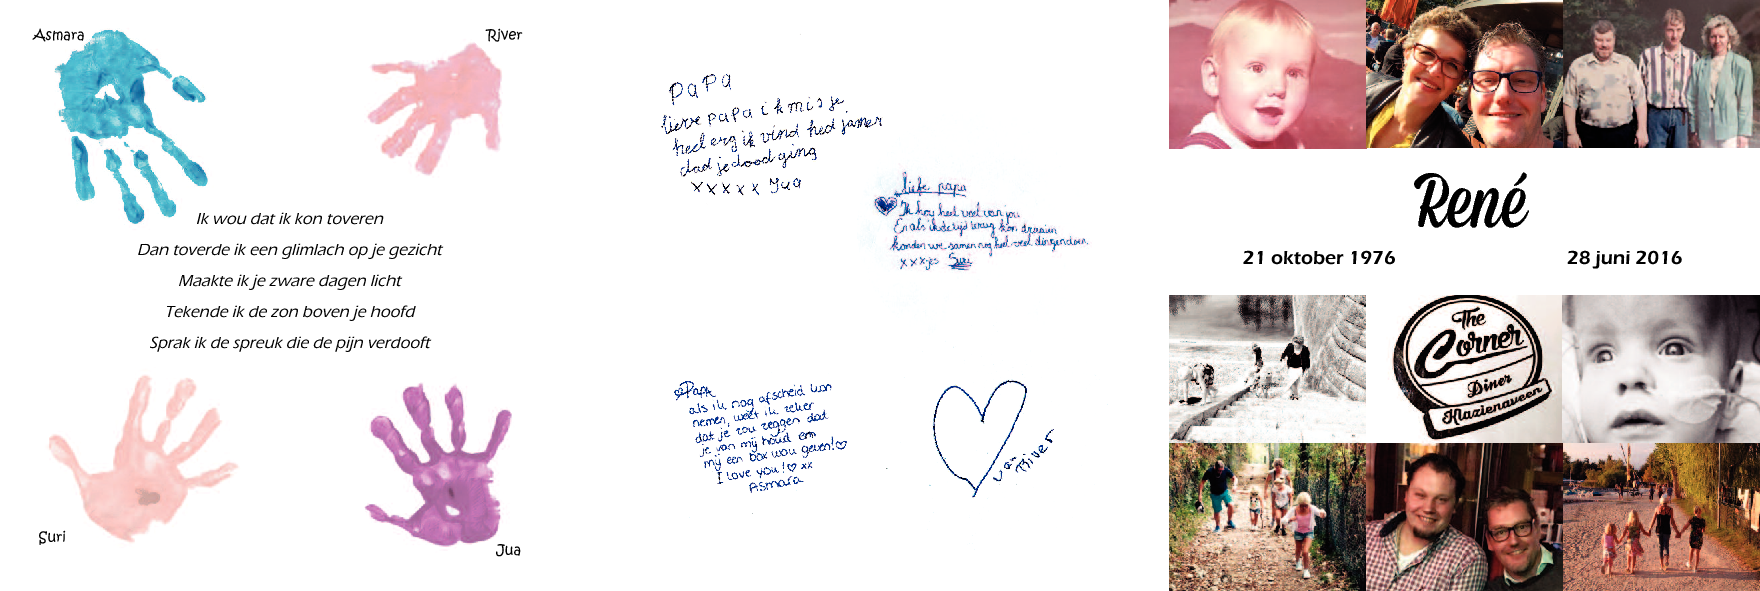 Asmara
River
Ik wou dat ik kon toveren
Dan toverde ik een glimlach op je gezicht
Maakte ik je zware dagen licht
Tekende ik de zon boven je hoofd
Sprak ik de spreuk die de pijn verdooft
Suri
Jua
PaPa
lieve papa ik mis je
heel erg ik vind hed jamer
dad je dood ging
x x x x x Jua
liefe papa
Ik hou heel veel van jou
En als ik de tijd terug kon draaien
konden we samen nog heel veel dingen doen.
x x x jes Suri
Papa
als ik nog afscheid kon
nemen, weet ik zeker
dat je zou zeggen dad
je van mij houd em
mij een box wou geven!
I love you! xx
Asmara
van
River
René
21 oktober 1976
28 juni 2016
The
Corner
Diner
Klazienaveen